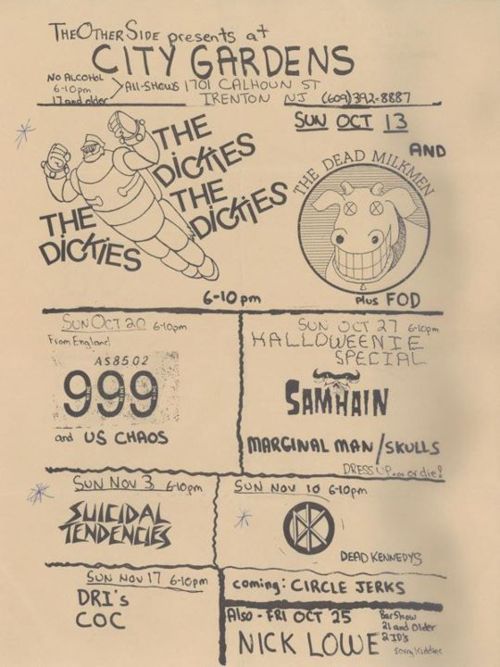 THE OTHER SIDE presents at
CITY GARDENS
NO ALCOHOL
6-10pm
17 and older
All-SHOWS 1701 CALHOUN ST
TRENTON NJ (609)392-8887
SUN OCT 13
AND
THE DICKIES
THE DICKIES
THE DICKIES
THE DEAD MILKMEN
6-10pm
Plus FOD
SUN OCT 20 6-10pm
From England
AS8502
999
and US CHAOS
SUN OCT 27 6-10pm
HALLOWEENIE
SPECIAL
SAMHAIN
MARGINAL MAN/SKULLS
DRESS UP... or die!
SUN NOV 3 6-10pm
SUICIDAL
TENDENCIES
SUN NOV 10 6-10pm
DK
DEAD KENNEDYS
SUN NOV 17 6-10pm
DRI's
COC
coming: CIRCLE JERKS
Also - FRI OCT 25
Bar Show
21 and Older
2 ID's
NICK LOWE
Sorry Kiddies